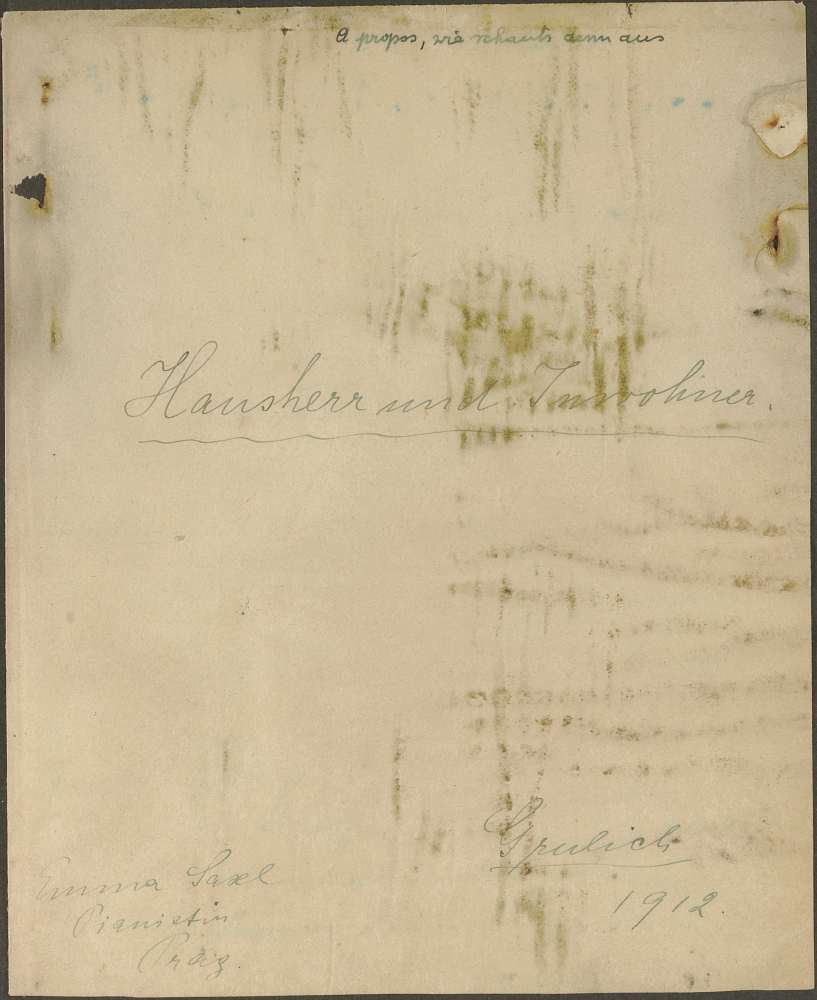 A propos, wie schauts denn aus
Hausherr und Inwohner.
Grulich
1912.
Emma Saxl
Pianistin
Prag.